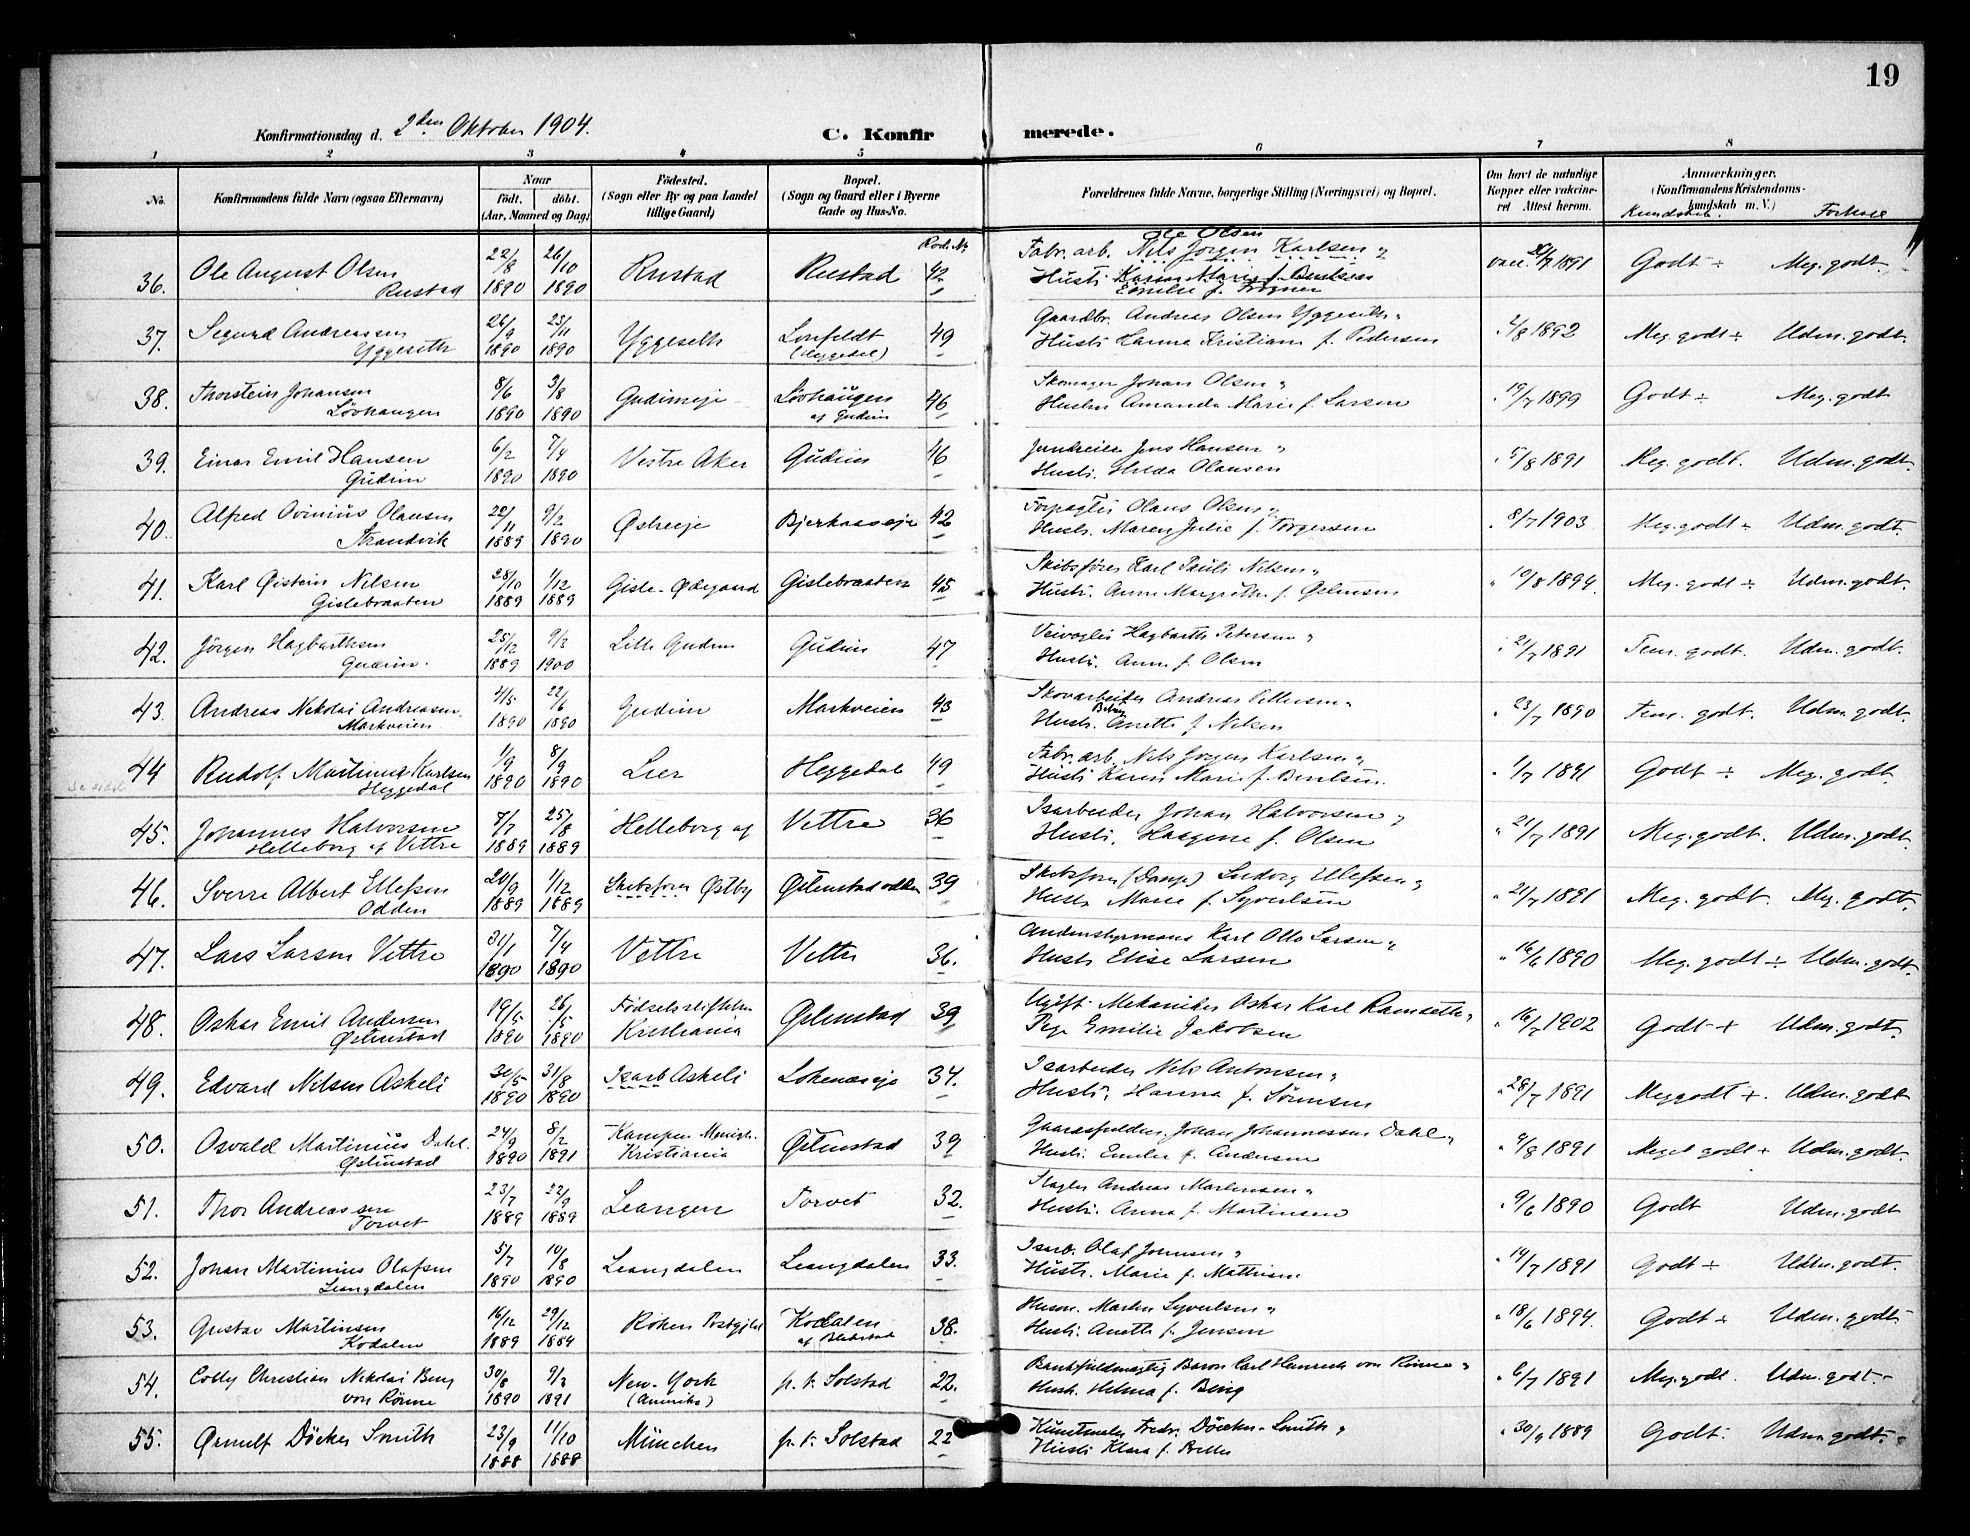 19
Konfirmationsdag d. 2den Oktober 1904.
C. Konfirmerede.
1 2 3 4 5 6 7 8
No. Konfirmandens fulde Navn (ogsaa Efternavn) Naar født, døbt. (Aar, Maaned og Dag) Fødested. (Sogn eller By og paa Landet tillige Gaard) Bopæl. (Sogn og Gaard eller i Byerne Gade og Hus-No. Forældrenes fulde Navne, borgerlige Stilling (Næringsvei) og Bopæl. Om havt de naturlige Kopper eller vakcineret Attest herom. Anmærkninger. (Konfirmandens Kristendomskundskab m. V.)
Rode No. Kundskab. Forhold
36. Ole August Olsen 22/8 26/10 Rustad Rustad 42 Fabr. arb. Nils Jørgen Karlsen " Ole Olsen vacc. 1891 Godt ÷ Meg. godt.
Rustad 1890 1890 Hustr. Karen Marie f. Berntsen
Emilie f.
37. Sigurd Andreassen 26/9 23/11 Yggeseth Lonfeldt 49 Gaardbr. Andreas Olsen Yggeseth " 2/8 1892 Meg. godt ÷ Udm. godt.
Yggeseth 1890 1890 (Heggedal) Hustr. Hanna Kristiane f. Pedersen
38. Thorstein Johansen 8/6 3/8 Gudimeje Løvhaugen 46 Skomager Johan Olsen " 19/7 1899 Godt ÷ Meg. godt
Løvhaugen 1890 1890 af Gudim Hustru Amanda Marie f. Larsen
39. Einar Emil Hansen 6/2 7/4 Vestre Aker Gudim 46 Jens Hansen " 5/8 1891 Meg. godt. Udm. godt.
Gudim 1890 1890 Hustr. Hulda Olausen
40. Alfred Ovinius Olausen 22/11 9/2 Østreeje Bjerkaaseje 42 Forpagter Olaus Olsen " 8/7 1903 Meg. godt ÷ Udm. godt.
Strandvik 1889 1890 Hustr. Maren Julie f. Torgersen
41. Karl Øistein Nilsen 28/10 1/12 Gisle-Ødegaard Gislebraaten 45 Skibsfører Karl Pauli Nilsen " 19/8 1894. Meg. godt ÷ Udm. godt.
Gislebraaten 1889 1889 Hustr. Anne Margrethe f.
42. Jørgen Hagbarthsen 25/12 9/3 Lille Gudim Gudim 47 Veivogter Hagbarth Petersen " 21/7 1891 Tem. godt. Udm. godt.
Gudim. 1889 1900 Hustr. Anna f. Olsen
43. Andreas Nikolai Andreasen. 4/5 22/6 Gudim Markveien 43 Skovarbeider Andreas Pettersen " 23/7 1890 Tem. godt. Udm. godt.
Markveien 1890 1890 Hustr. Anette f. Nilsen
44 Rudolf Martinus Karlsen 1/9 8/9 Lier Heggedal 49 Fabr. arb. Nils Jørgen Karlsen " 1/7 1891 Godt ÷ Meg. godt.
Heggedal 1890 1890 Hustr. Karen Marie f. Berntsen.
45. Johannes Halvorsen 7/7 25/8 Helleborg af Vettre 36 Isarbeider Johan Halvorsen " 21/7 1891 Meg. godt. Udm. godt.
Helleborg af Vettre 1889 1889 Hustr. Hasgine f. Olsen
46. Sverre Albert Ellefsen 20/9 1/12 Skibsfører Østby Østenstadodden 39 Skibsfører (Damp.) Ludvig Ellefsen " 21/7 1891 Meg. godt. Meg. godt.
Odden 1889 1889 Hustr. Marie f. Syvertsen
47. Lars Larsen Vettre 31/1 7/4 Vettre Vettre 36. Andenstyrmand Karl Otto Larsen " 16/6 1890 Meg. godt ÷ Udm. godt.
1890 1890 Hustr. Elise Larsen
48. Oskar Emil Andersen 19/5 26/5 Fødselsstiftelsen Østenstad 39 Ugift. Mekaniker Oskar Karl Ramsette " 16/7 1902 Godt + Udm. godt.
Østenstad 1890 1890 Kristiania Pige Emilie Jakobsen
49. Edvard Nilsen Askeli 30/5 31/8 Isarb Askeli Lokeneseje 34. Isarbeider Nils Antonsen " 28/7 1891 Meg godt +. Udm. godt
1890 1890 Hustr. Hanna f. Sørensen
50. Osvald Martinius Dahl. 24/9 8/2 Kampen Menigh. Østenstad 39 Johan Johannessen Dahl " 9/8 1891 Meget godt + Udm. godt.
Østenstad 1890 1891 Kristiania Hustr. Emilie f. Andersen
51. Thor Andreassen 23/7 22/9 Leangen Torvet 32. Slagter Andreas Martinsen " 9/6 1890 Godt Udm. godt
Torvet 1889 1889 Hustr. Anna f. Martinsen
52. Johan Martinius Olafsen 5/7 10/8 Leangdalen Leangdalen 33. Isarb. Olaf Johnsen " 14/7 1891 Godt ÷ Udm. godt.
Leangdalen 1890 1890 Hustr. Marie f. Mathisen
53. Gustav Martinsen 16/12 29/12 Røken Prestgjeld Kodalen 38. Husm. Martin Syvertsen " 18/6 1894. Godt ÷ Udm. godt.
Kodalen 1889 1884 af Blakstad Hustr. Anette f. Jensen
54. Colly Christian Nikolai Beng 30/8 9/3 New-York p. t. Solstad 22. Bankfuldmægtig Baron Carl Heinrich von Rønne " 6/7 1891 Meg. godt. Udm. godt.
von Rønne 1890 1891 (Amerika) Hustr. Helma f. Bing
55. Ørnulf Döcker Smith 23/9 11/10 München p. t. Solstad 22 Kunstmaler Fredr. Döcker-Smith " 30/9 1889 Godt. Udm. godt.
1888 1888 Hustr. Klara f.